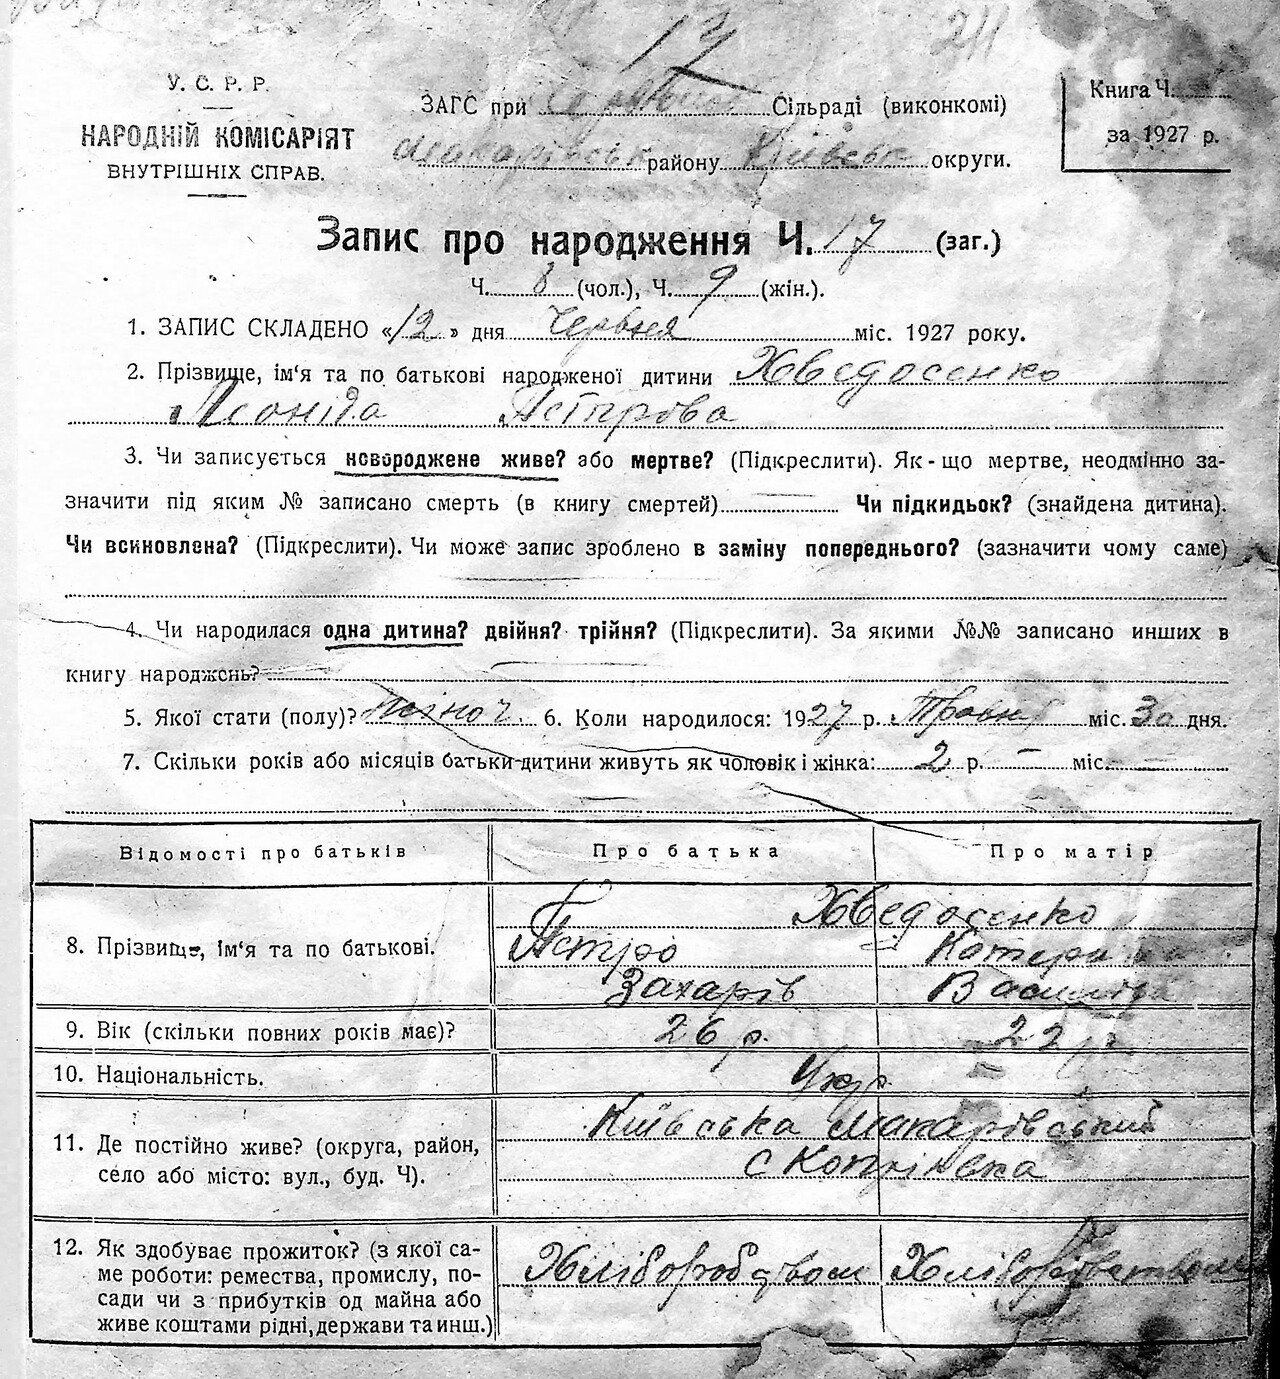 17
211
У. С. Р. Р.
НАРОДНІЙ КОМІСАРІЯТ
ВНУТРІШНІХ СПРАВ.
ЗАГС при Сільраді (виконкомі)
Макарівськ району Київськ округи.
Книга Ч.
за 1927 р.
Запис про народження Ч. 17 (заг.)
Ч. 8 (чол.), Ч. 9 (жін.).
1. ЗАПИС СКЛАДЕНО «12» дня Червня міс. 1927 року.
2. Прізвище, ім‘я та по батькові народженої дитини Хведосенко
Леоніда Петрова
3. Чи записується новороджене живе? або мертве? (Підкреслити). Як-що мертве, неодмінно за-
значити під яким № записано смерть (в книгу смертей) Чи підкидьок? (знайдена дитина).
Чи всиновлена? (Підкреслити). Чи може запис зроблено в заміну попереднього? (зазначити чому саме)
4. Чи народилася одна дитина? двійня? трійня? (Підкреслити). За якими №№ записано инших в
книгу народжень?
5. Якої стати (полу)? жіноч. 6. Коли народилося: 1927 р. Травня міс. 30 дня.
7. Скільки років або місяців батьки дитини живуть як чоловік і жінка: 2 р. — міс. —
Відомості про батьків Про батька Про матір
8. Прізвище, ім‘я та по батькові. Хведосенко
Петро Катерина
Захарів Василівна
9. Вік (скільки повних років має)? 26 р. 22 р.
10. Національність. Укр.
11. Де постійно живе? (округа, район, Київська Макарівський
село або місто: вул., буд. Ч). с Копіївка
12. Як здобуває прожиток? (з якої са- Хліборобством Хліборобством
ме роботи: ремества, промислу, по-
сади чи з прибутків од майна або
живе коштами рідні, держави та инш.)